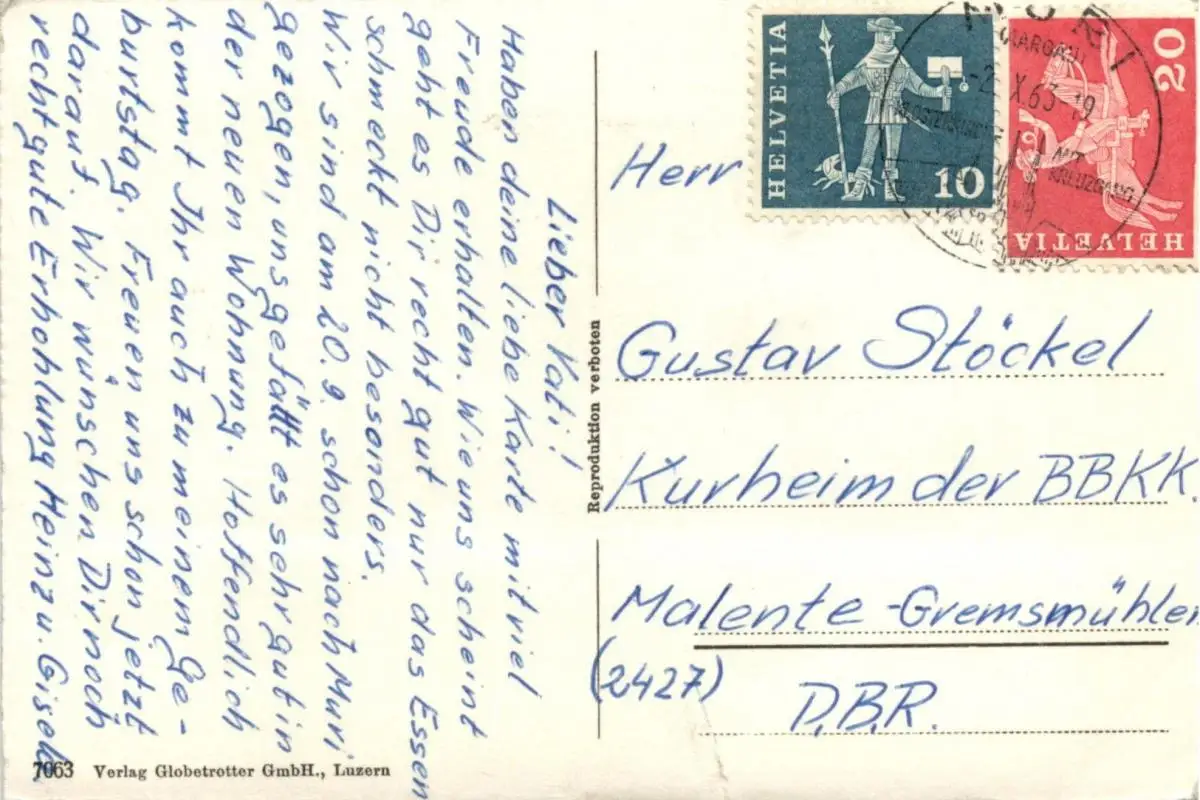 Lieber Vati!
Haben deine liebe Karte mit viel
Freude erhalten. Wie uns scheint
geht es Dir recht gut nur das Essen
schmeckt nicht besonders.
Wir sind am 20.9. schon nach Muri
gezogen, uns gefällt es sehr gut in
der neuen Wohnung. Hoffendlich
kommt Ihr auch zu meinem Ge-
burtstag. Freuen uns schon jetzt
darauf. Wir wünschen Dir noch
recht gute Erhohlung Heinz u. Gisela
7063 Verlag Globetrotter GmbH., Luzern
Reproduktion verboten
HELVETIA
10
20
HELVETIA
MURI
(AARGAU)
-2.X.63-19
KLOSTERKIRCHE
MIT
KREUZGANG
Herr
Gustav Stöckel
Kurheim der BBKK.
Malente-Gremsmühlen
(2427)
D.B.R.